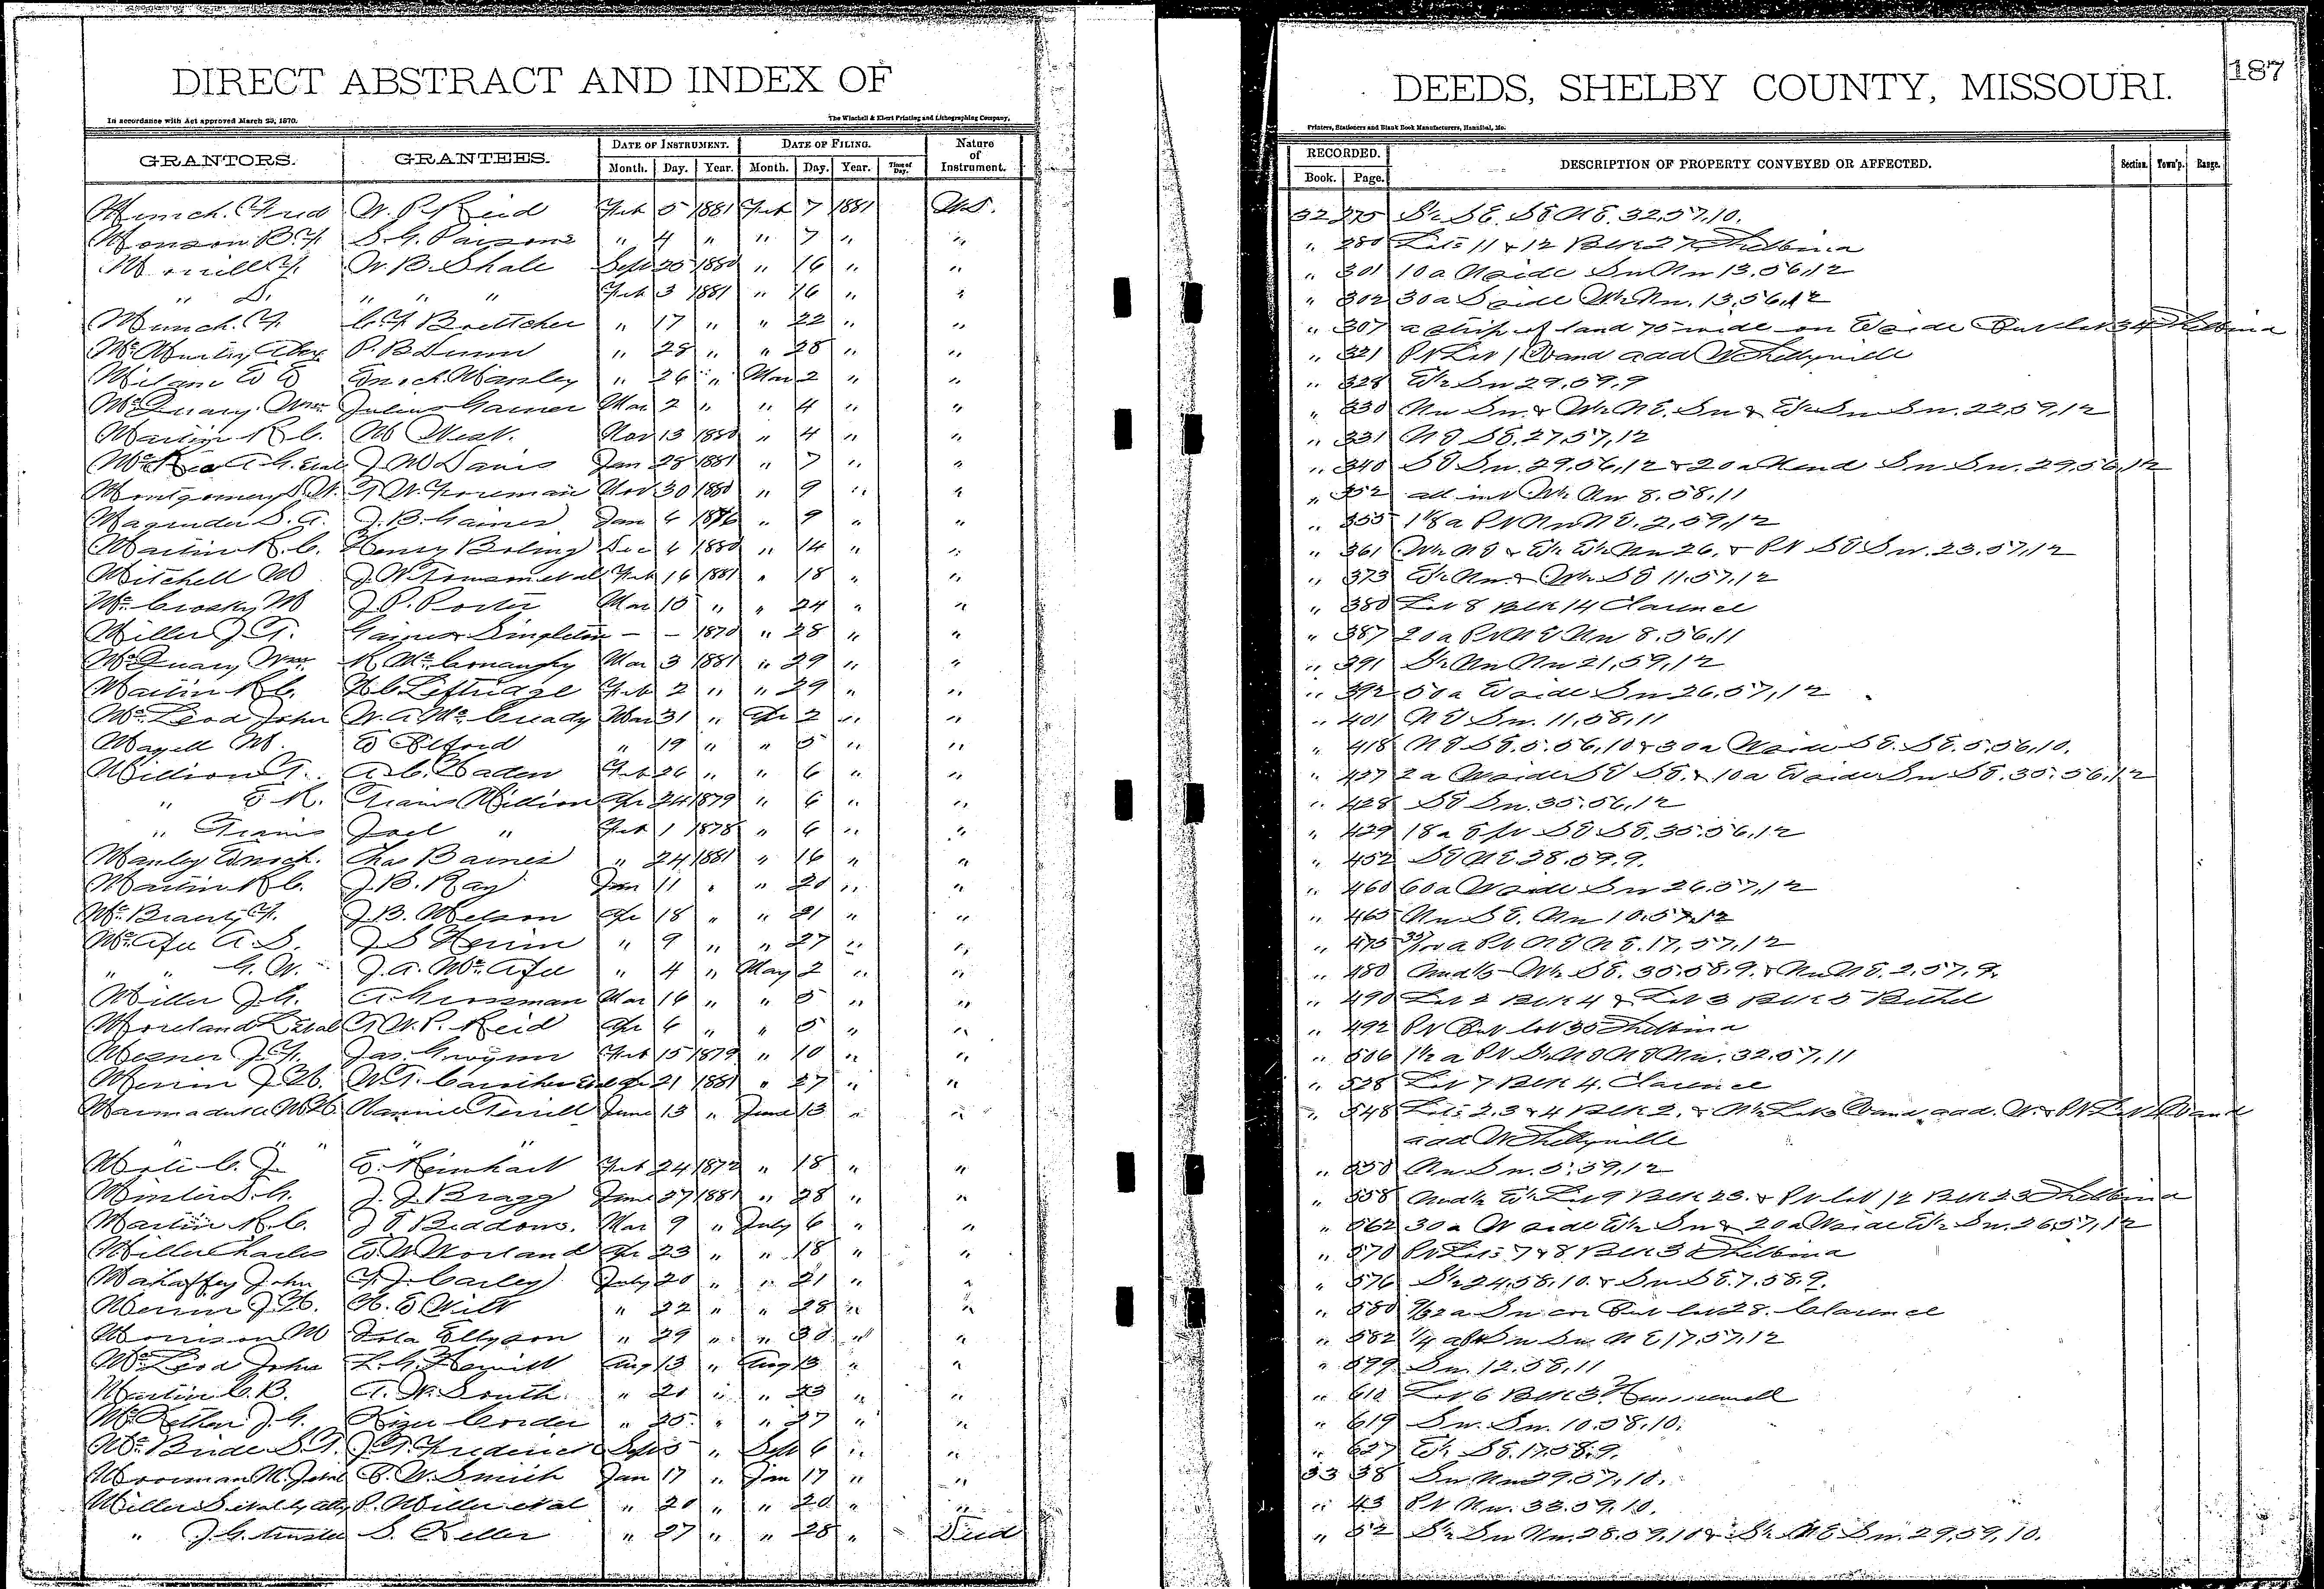 187
DIRECT ABSTRACT AND INDEX OF DEEDS, SHELBY COUNTY, MISSOURI.
In accordance with Act approved March 23, 1870. The Winchell & Ebert Printing and Lithographing Company, Printers, Stationers and Blank Book Manufacturers, Hannibal, Mo.
GRANTORS. GRANTEES. DATE OF INSTRUMENT. DATE OF FILING. Nature of Instrument. RECORDED. DESCRIPTION OF PROPERTY CONVEYED OR AFFECTED. Section. Town'p. Range.
Month. Day. Year. Month. Day. Year. Time of Day. Book. Page.
Munch. Fred W. P. Reid Feb 5 1881 Feb 7 1881 W.D. 32 275 S½ SE. SE NE. 32,57,10.
Monson B. F. S. G. Parsons " 4 " " 7 " " " 280 Lots 11 & 12 Blk 27 Shelbina
W. B. Shale Sept 25 1880 " 16 " " " 301 10a N side Sw Nw 13,56,12
" S. " " " Feb 3 1881 " 16 " " " 302 30a S side W½ Nw. 13,56,12
Munch. F. C. F. Boettcher " 17 " " 22 " " " 307 a strip of land 75 wide on E side Out lot 34 Shelbina
P. B. Dunn " 28 " " 28 " " " 321 Pt Lot 1 add W Shelbyville
Milam E E Enoch Manley " 26 " Mar 2 " " " 328 E½ Sw 29,59,9
McQuary. Wm Julius Garner Mar 2 " " 4 " " " 330 Nw Sw. & W½ NE. Sw & E½ Sw Sw. 22,59,12
Martin R. C. M West. Nov 13 1880 " 4 " " " 331 NE SE. 27,57,12
McKee A. G. Etal J. M Davis Jan 28 1881 " 7 " " " 340 SE Sw. 29,56,12 & 20a N end Sw Sw. 29,56,12
Montgomery S. W. T. W. Foreman Nov 30 1880 " 9 " " " 352 all int W½ Nw 8.58,11
Magruder S. A. J. B. Gaines Jan 6 1876 " 9 " " " 355 1⅛a Pt Nw NE. 2,59,12
Martin R. C. Henry Boling Dec 6 1880 " 14 " " " 361 W½ NE & E½ E½ Nw 26. & Pt SE Sw. 23.57,12
Mitchell M J. W. Towson etal Feb 16 1881 " 18 " " " 373 E½ Nw. & W½ SE 11.57.12
McCrosky M J. P. Porter Mar 15 " " 24 " " " 380 Lot 8 Blk 14 Clarence
Miller J. T. Gaines & Singleton – – 1870 " 28 " " " 387 20a Pt NE Nw 8.56,11
McQuary Wm. R. McConaughy Mar 3 1881 " 29 " " " 391 S½ Nw Nw 21,59,12
Martin R. C. H. C. Leftridge Feb 2 " " 29 " " " 392 50a E side Sw 26,57,12
McLeod John W. A. McCready Mar 31 " Apr 2 " " " 401 NE Sw. 11,58,11
Magell M. E Alford " 19 " " 5 " " " 418 NE SE. 5.56,10 & 30a W side SE. SE. 5.56,10.
Million T. A. C. Haden Feb 26 " " 6 " " " 427 2a W side SE SE. & 10a E side Sw SE. 35.56,12
" E R. Travis Million Apr 24 1879 " 6 " " " 428 SE Sw. 35.56,12
" Travis Joel " Feb 1 1878 " 6 " " " 429 18a E pt SE SE. 35.56,12
Manley Enoch. Chas Baines " 24 1881 " 16 " " " 452 SE NE 28.59.9.
Martin R. C. J. B. Ray Jan 11 " " 20 " " " 460 60a W side Sw 26.57,12
J. B. Melson Apr 18 " " 21 " " " 465 Nw SE. Nw 10.57.12
McAfee A. S. J S " 9 " " 27 " " " 475 37/100 a Pt NE NE. 17,57,12
" " G. W. J. A. McAfee " 4 " May 2 " " " 480 W½ SE. 35.58.9. & Nw NE. 2.57.9.
Miller J. G. A. Grossman Mar 16 " " 5 " " " 490 Lot 2 Blk 4 & Lot 3 Blk 5 Bethel
Moreland L etal T. W. P. Reid Apr 6 " " 5 " " " 492 Pt Out lot 35 Shelbina
J. F. Jas. Gwynn Feb 15 1879 " 10 " " " 506 1½ a Pt S½ NE NE Nw. 32.57.11
J. H. W. T. Apr 21 1881 " 27 " " " 528 Lot 7 Blk 4. Clarence
Marmaduke M H Nannie Terrill June 13 " June 13 " " " 548 Lots 2. 3 & 4 Blk 2. & add. W. & Pt Lot
" " " " " add W Shelbyville
C. J. E. Reinhart Feb 24 1872 " 18 " " " 550 Nw Sw. 5.59,12
Minter S. G. J. J. Bragg June 27 1881 " 28 " " " 558 Und½ E½ Lot 9 Blk 23. & Pt lot 12 Blk 23 Shelbina
Martin R. C. J E Beddows. Mar 9 " July 6 " " " 562 30a W side E½ Sw & 20a W side E½ Sw. 26,57,12
Miller Charles E W Worland Apr 23 " " 18 " " " 570 Pt Lots 7 & 8 Blk 3 Shelbina
Mahaffey John F. J. Carley July 20 " " 21 " " " 576 S½ 24,58,10. & Sw SE. 7.58.9.
J. H. H. E Wilt " 22 " " 28 " " " 580 9/32 a Sw cor Out lot 28. Clarence
Morrison M Iola Ellyson " 29 " " 30 " " " 582 ¼ a Sw NE 17.57,12
McLeod John L. G. Aug 13 " Aug 13 " " " 599 Sw. 12.58,11
Martin C. B. A. W. South. " 20 " " 23 " " " 610 Lot 6 Blk 3 Hunnewell
J. G. Corder " 25. " " 27 " " " 619 Sw. Sw. 10.58,10.
McBride S. T. J. T. Frederick Sept 5 " Sept 6 " " " 627 E½ SE. 17.58.9.
Moorman M. J etal C. W. Smith Jan 17 " Jan 17 " " 33 38 Sw Nw 29.57,10.
Miller S etal by atty P. Miller etal " 20 " " 20 " " " 43 Pt Nw. 33.59.10.
" J. G. trustee S. Keller " 27 " " 28 " Deed " 52 S½ Sw Nw. 28.59,10 & S½ NE Sw. 29,59,10.